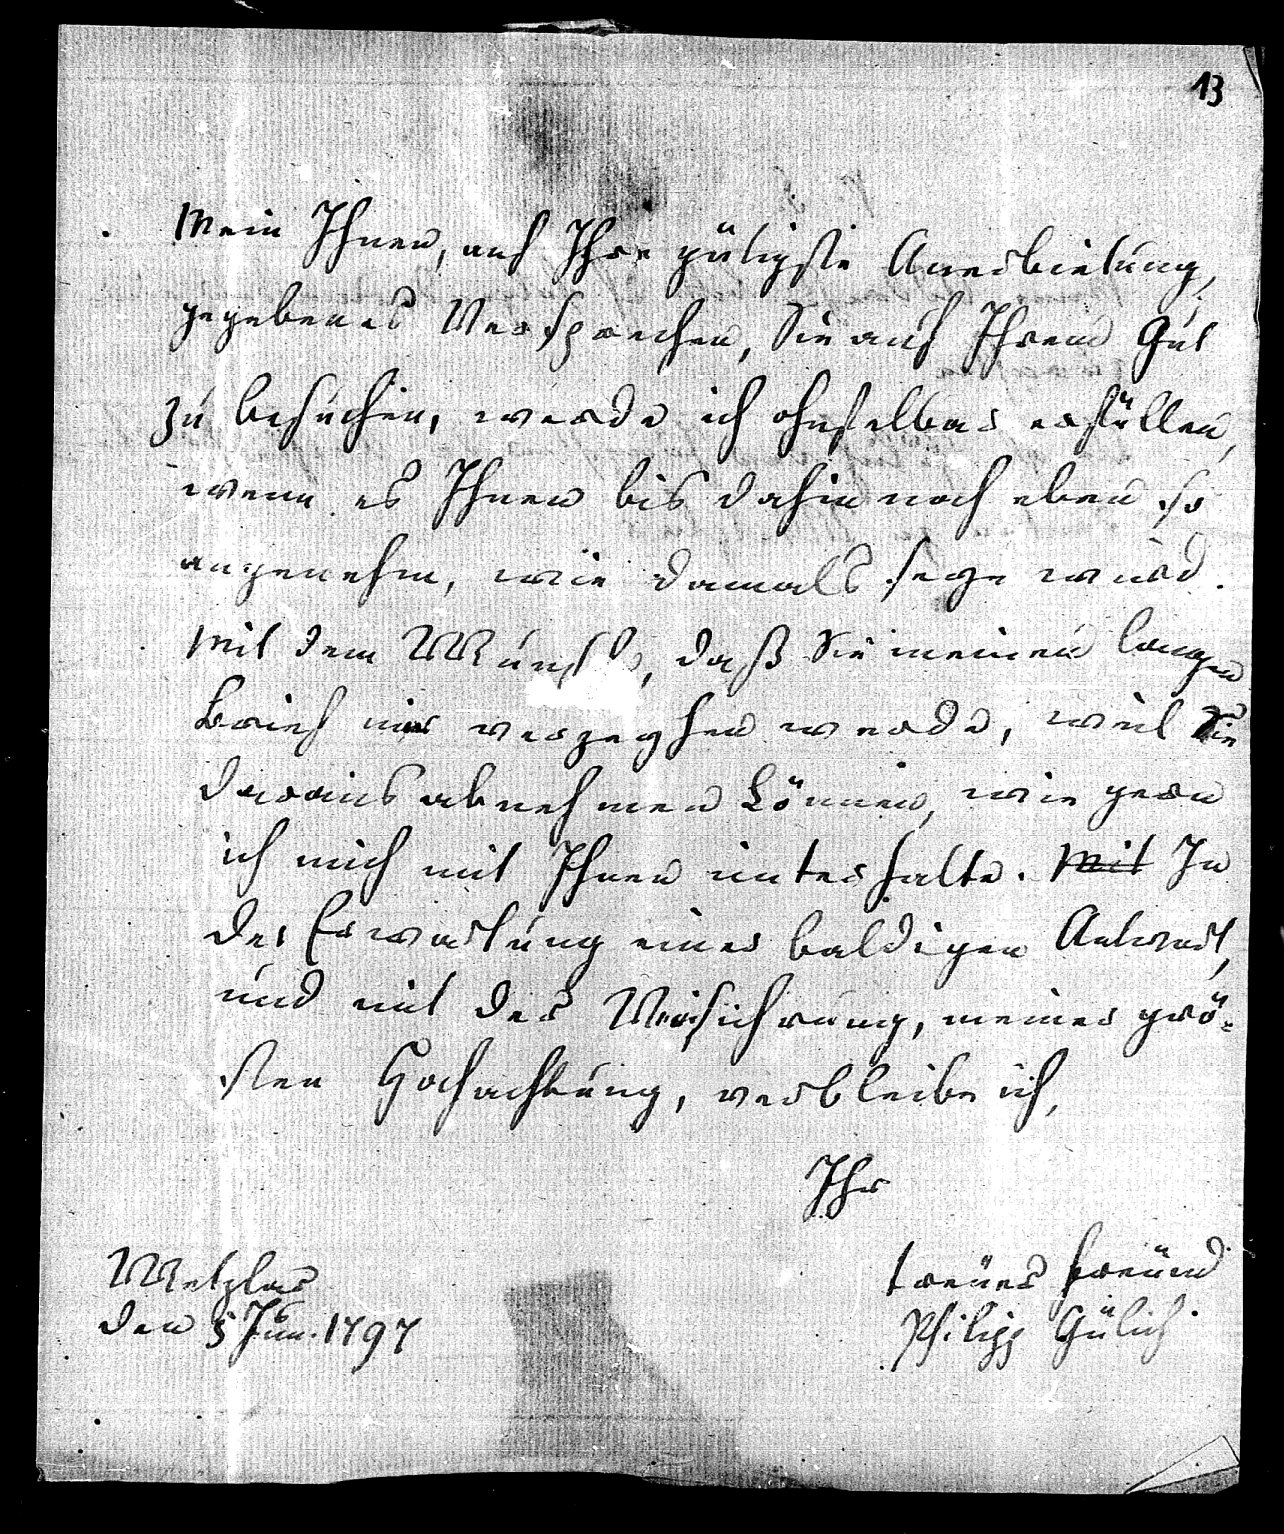 13
Mein Ihnen, auf Ihre gütigste Anerbietung,
gegebenes Versprechen, Sie auf Ihrem Gut
zu besuchen, werde ich ohnfelbar erfüllen,
wenn es Ihnen bis dahin noch eben so
angenehm, wie damals seyn wird.
Mit dem Wunsch, daß Sie meinen langen
Brief mir verzeyhen werde, weil Sie
daraus abnehmen können, wie gern
ich mich mit Ihnen unterhalte. Mit In
der Erwartung einer baldigen Antwort,
und mit der Versichrung, meiner grö-
sten Hochachtung, verbleibe ich,
Ihr
treuer Freund
Philipp Gülich
Wetzlar
den 5 Jun. 1797